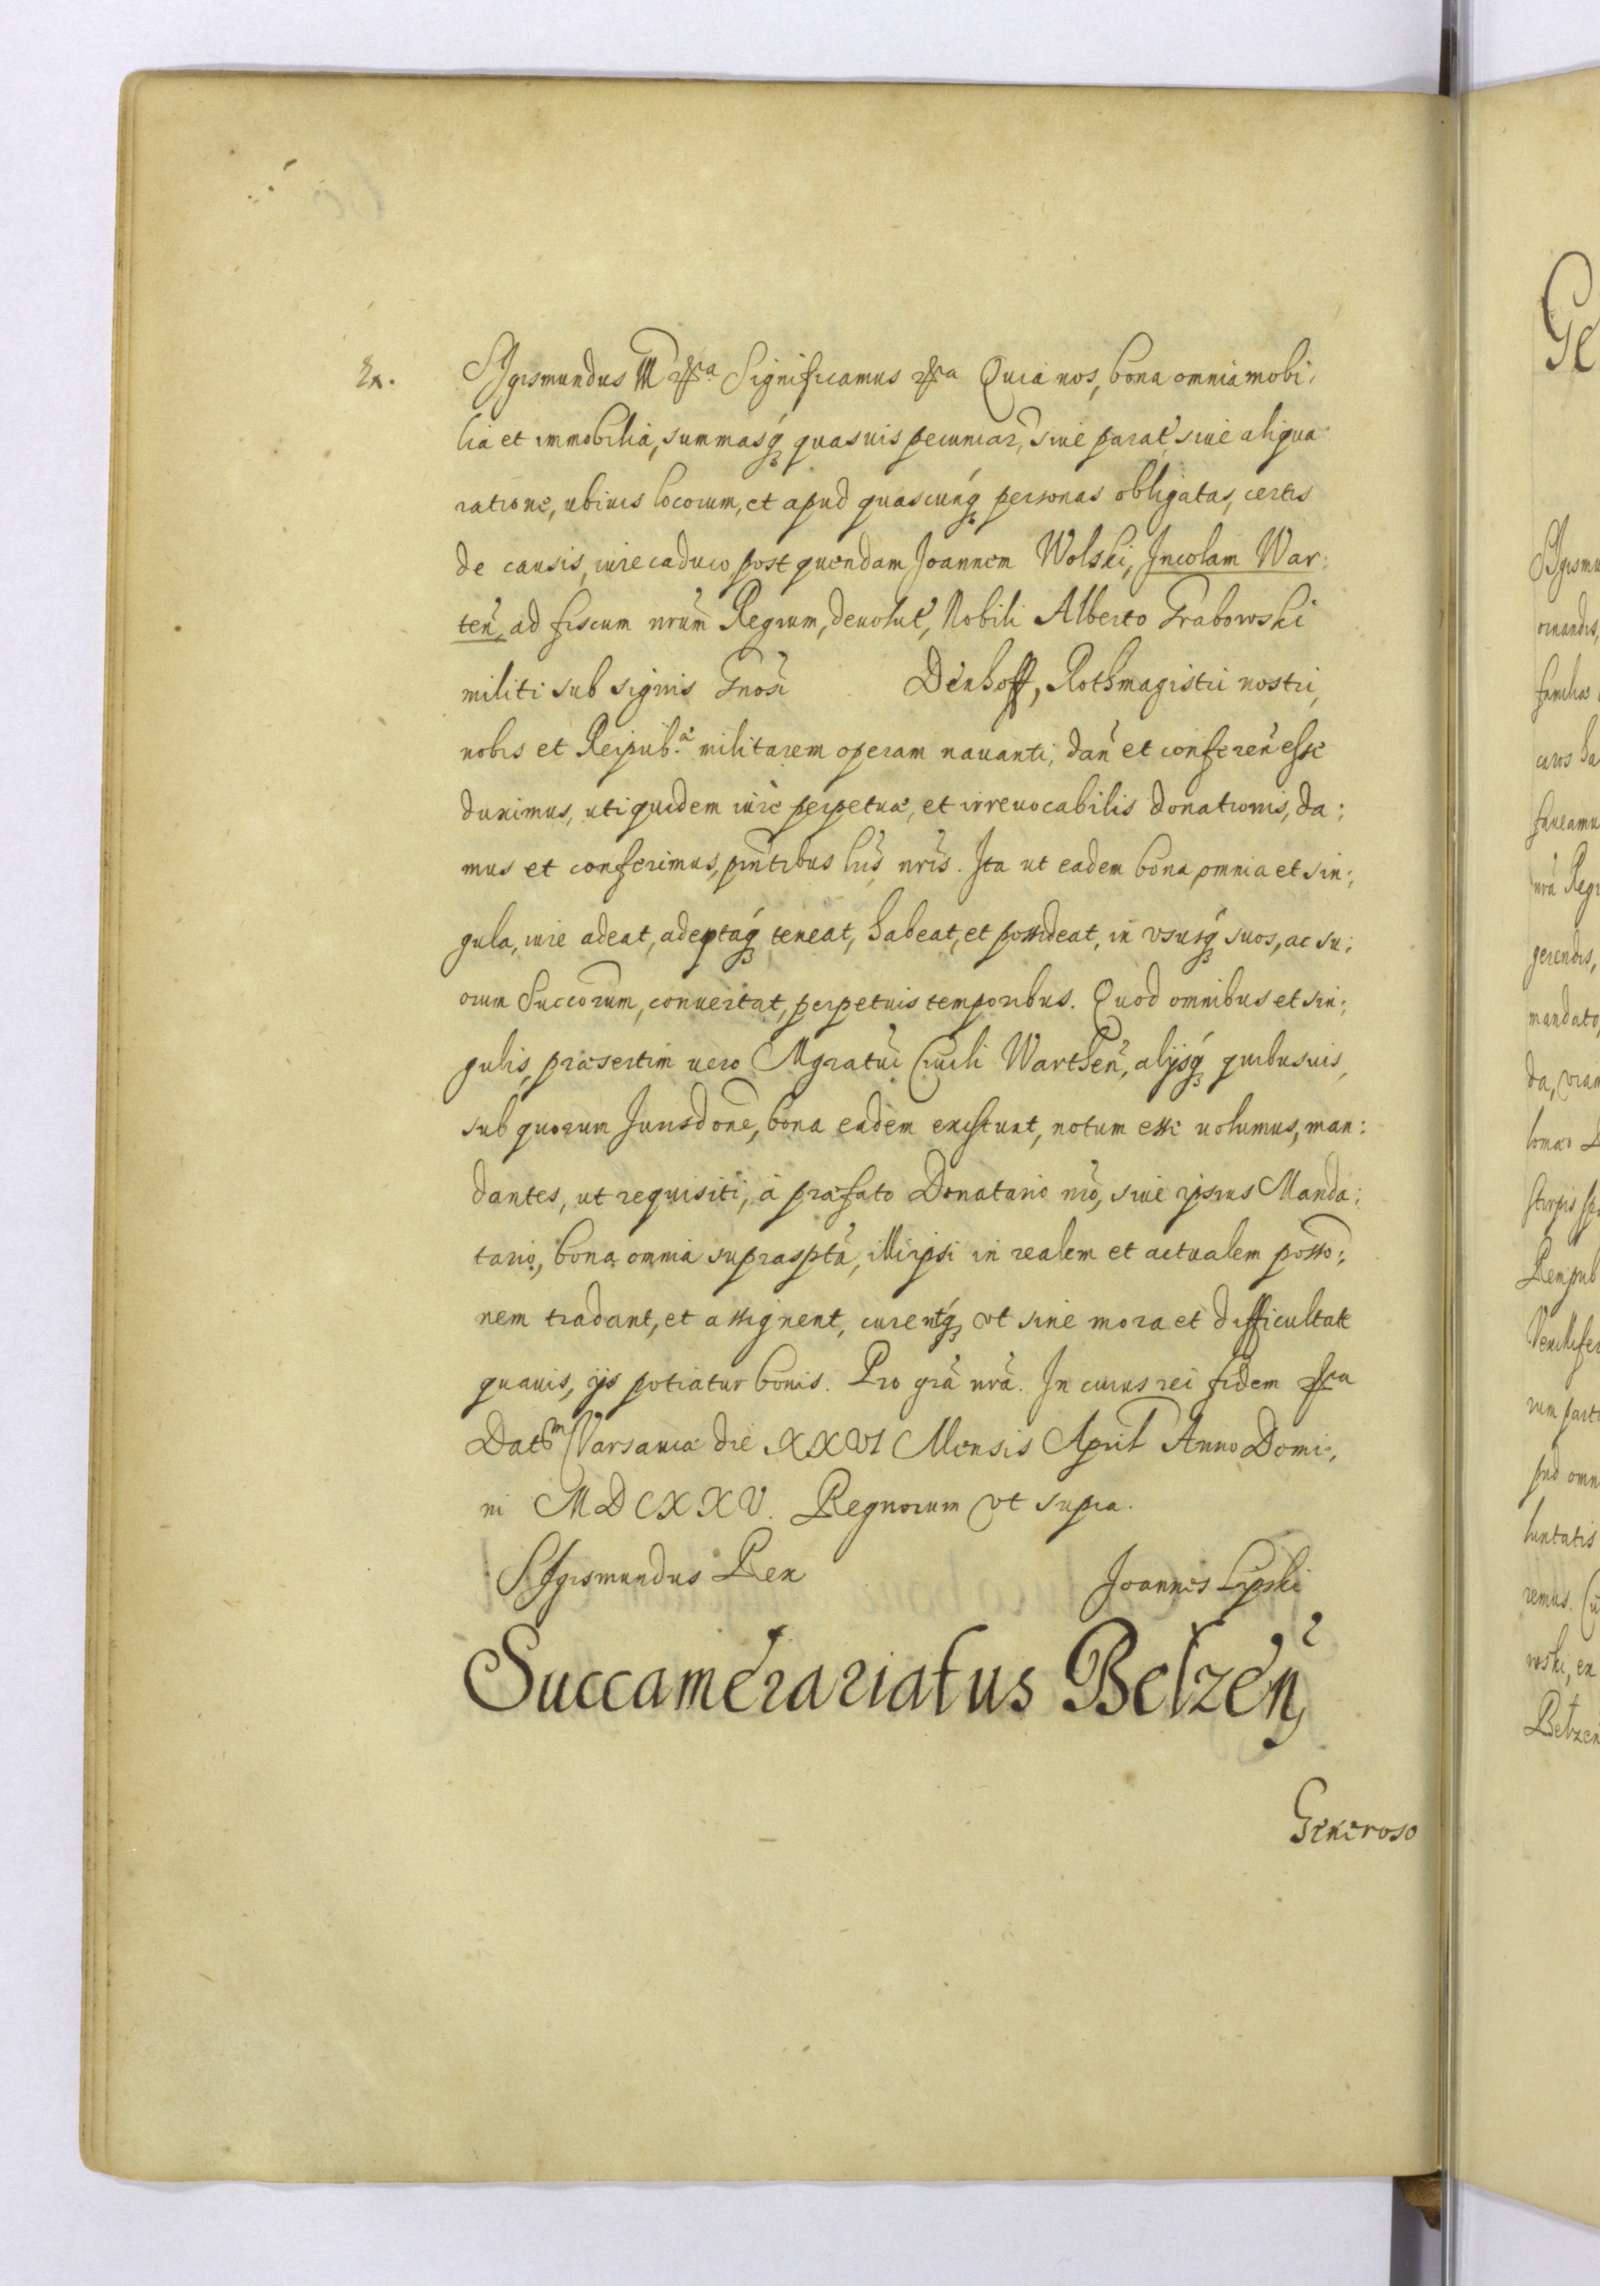 Ex.
SIgismundus III etca Significamus etca Quia nos, bona omnia mobi,
lia et immobilia, summasq quasuis pecuniar, siue parat, siue aliqua
ratione, ubiuis locorum, et apud quascunq personas obligatas, certis
de causis, iure caduco post quendam Joannem Wolski, Incolam War:
ten, ad fiscum nrum Regium, deuolut, Nobili Alberto Grabowski
militi sub signis Gnosi Denhoff, Rothmagistri nostri,
nobis et Reipub.a militarem operam nauanti, dan et conferen esse
duximus, uti quidem iure perpetuæ, et irreuocabilis donationis, da:
mus et conferimus, pntibus lris nris. Ita ut eadem bona omnia et sin:,
gula, iure adeat, adeptaq teneat, habeat, et possideat, in vsusq suos, ac su:
orum Succorum, conuertat, perpetuis temporibus. Quod omnibus et sin:,
gulis, præsertim uero Mgratui Ciuili Warthen, alijsq quibusuis,
sub quorum Jurisdone, bona eadem existunt, notum esse uolumus, man:
dantes, ut requisiti, à præfato Donatario nro, siue ipsius Manda:
tario, bona omnia suprasptâ, illi ipsi in realem et actualem posso:,
nem tradant, et assignent, curentq vt sine mora et difficultate
quauis, ijs potiatur bonis. Pro grâ nrâ. In cuius rei fidem etca
Datm Varsauiæ die XXVI Mensis April Anno Domi:,
ni MDCXXV. Regnorum vt supra.
SIgismundus Rex Joannes Lipski
Succamerariatus Belzen,
Generoso
Ge
SIgismu
ornandis,
familias
caros ha
faueamu
nrâ Regi
gerendis,
mandato,
stirpis
Reipub
Vexillife
rum
pud omn
luntatis
remus.
Belzen